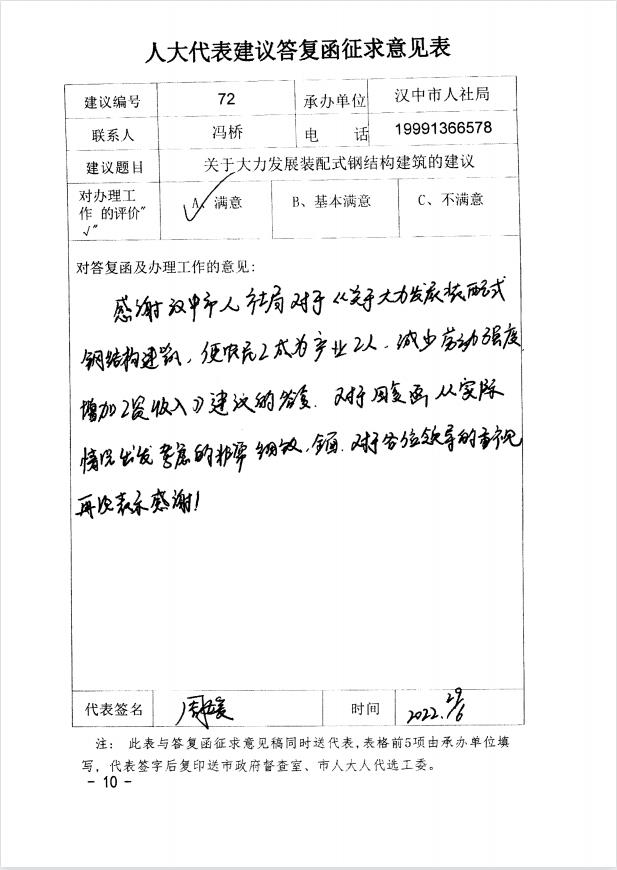 人大代表建议答复函征求意见表
建议编号 72 承办单位 汉中市人社局
联系人 冯桥 电 话 19991366578
建议题目 关于大力发展装配式钢结构建筑的建议
对办理工作 的评价"√" A、满意 B、基本满意 C、不满意
对答复函及办理工作的意见:
感谢汉中市人社局对于《关于大力发展装配式
钢结构建筑,使农民工成为产业工人,减少劳动强度
增加工资收入》建议的答复.对于回复函从实际
情况出发考虑的非常细致,全面.对于各位领导的重视
再次表示感谢!
代表签名 时间 2022.29/6
注: 此表与答复函征求意见稿同时送代表,表格前5项由承办单位填
写,代表签字后复印送市政府督查室、市人大人代选工委。
- 10 -